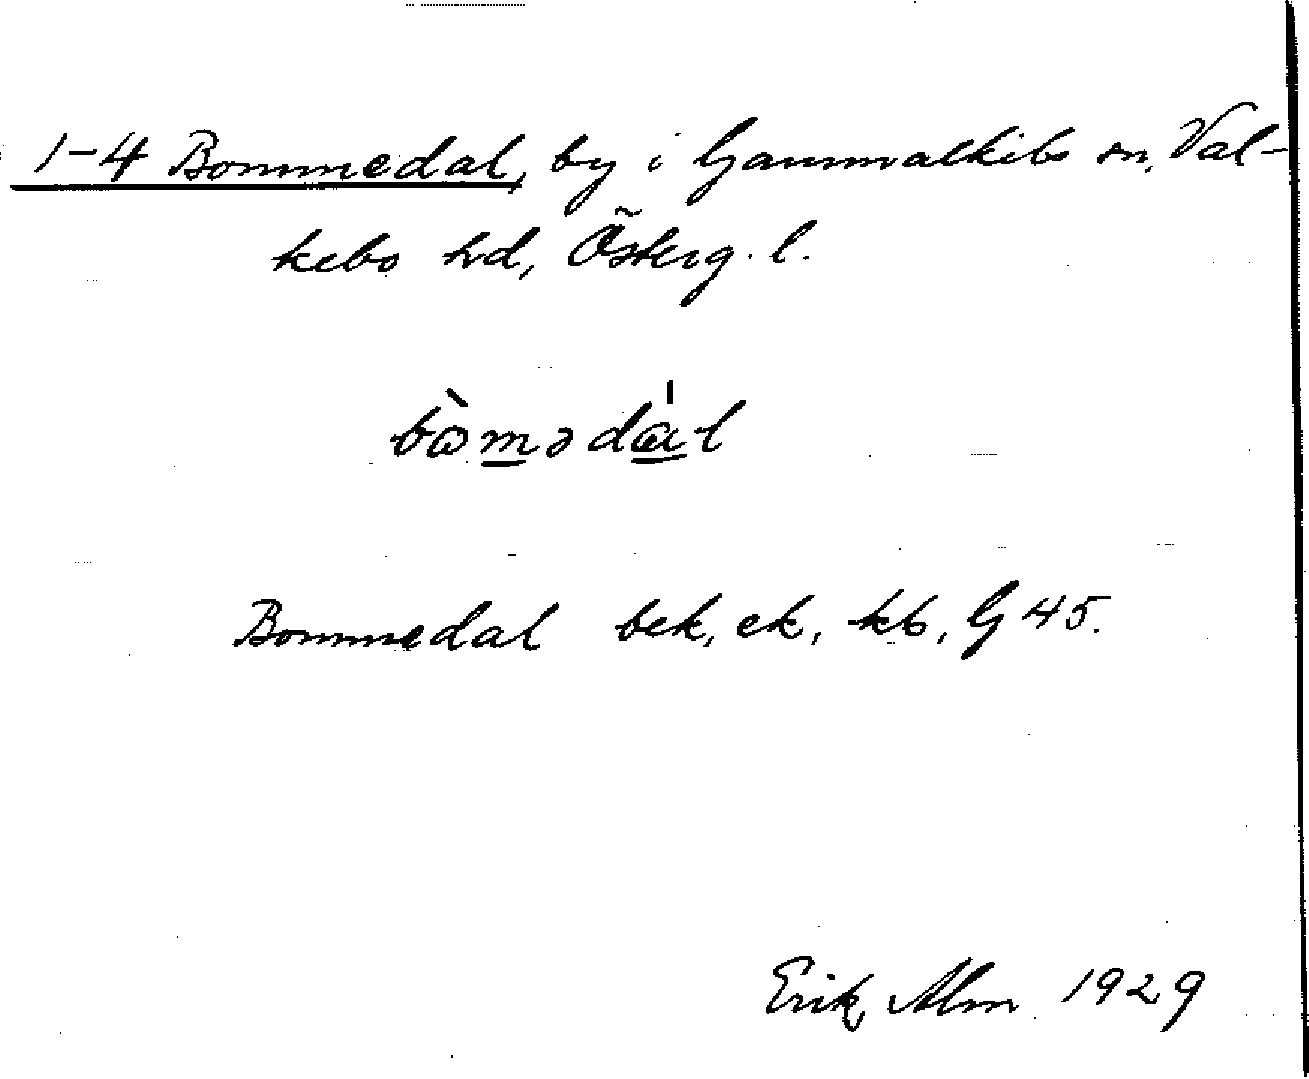 1-4 Bommedal, by i Gammalkils sn, Val-
kebo hd, Österg. l.
Bommedal bek, ek, kb, G 45.
Erik Alm 1929